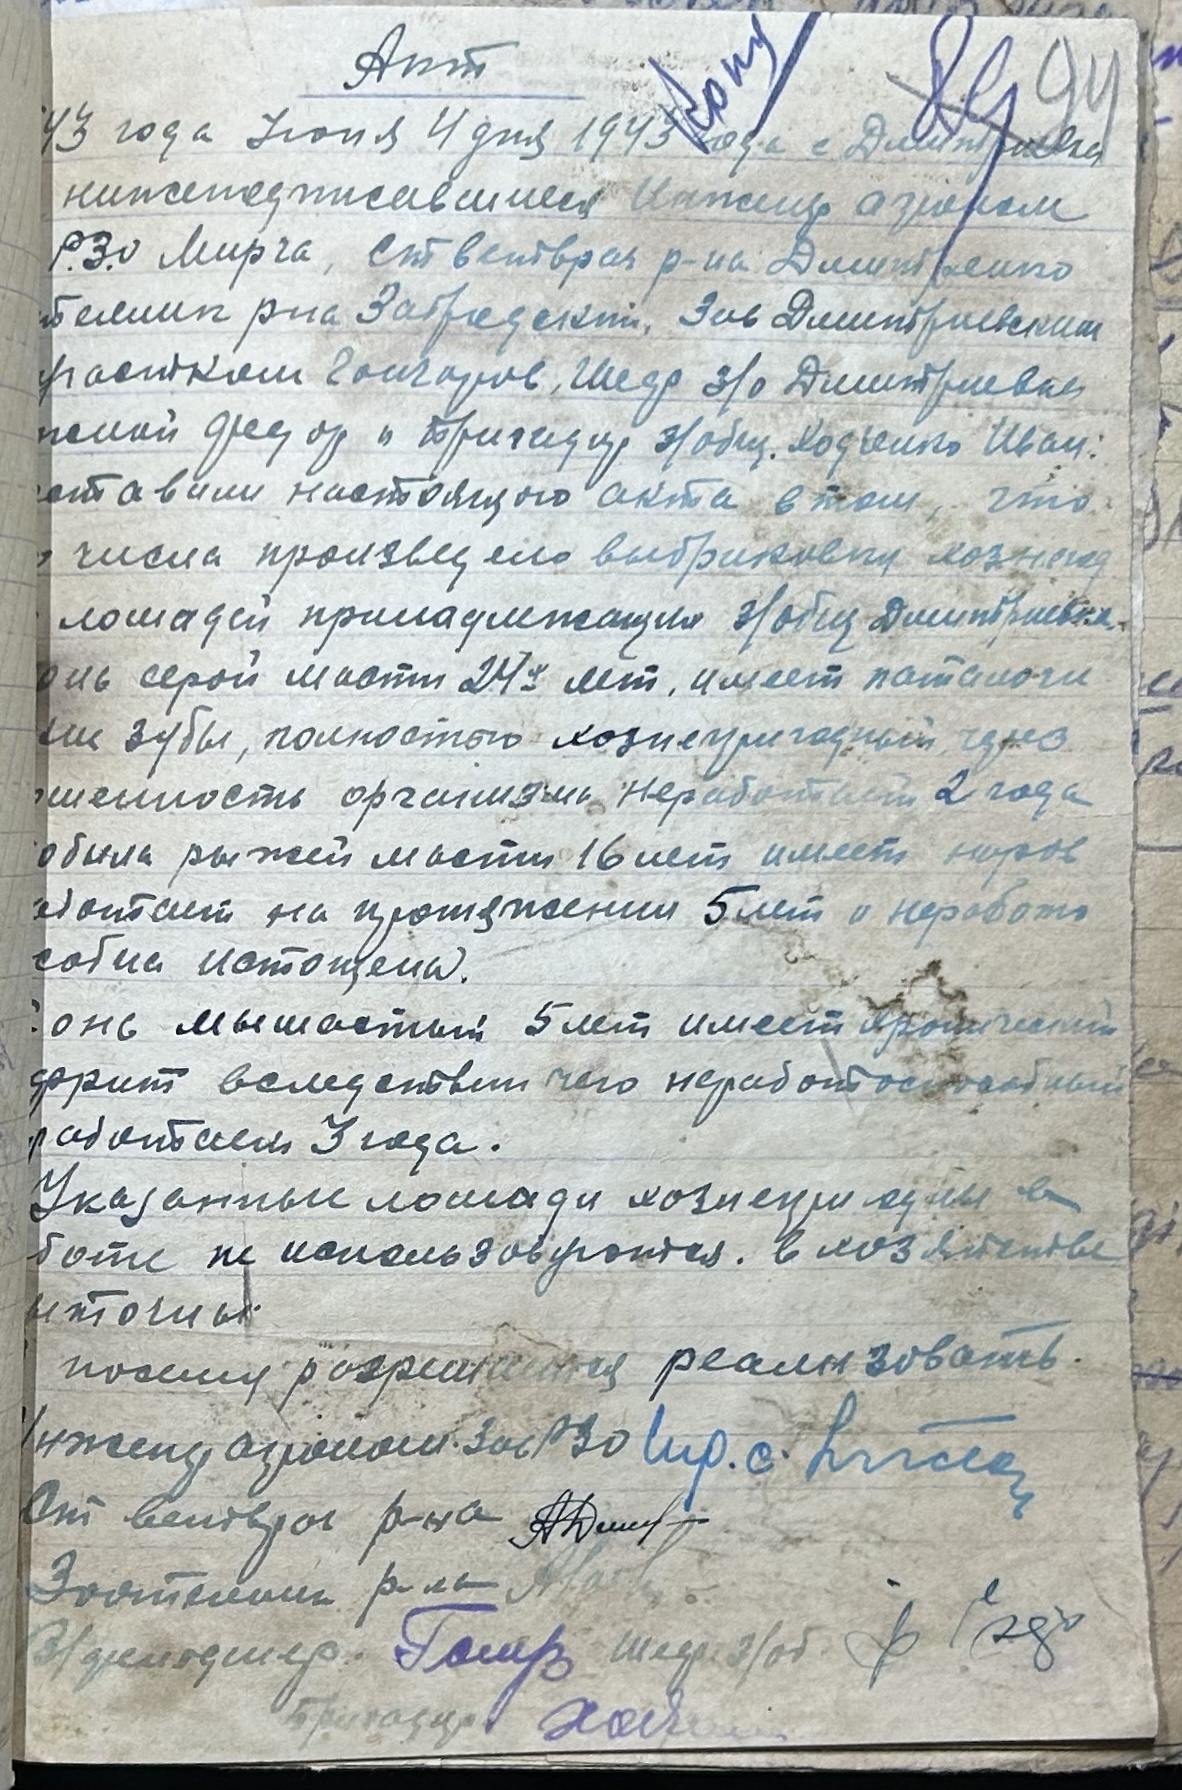 Акт
Копия
94
43 года Июня 4 дня 1943 года с Дмитриевка
нижеподписавшиеся Инженер агроном
Р.З.О Мирга, Ст ветврач р-на Дмитренко
техник р-на Зав Дмитриевским
участком Гончаров, Шеф з/о Дмитриевка
Федор и бригадир з/общ. Ходченко Иван
составили настоящого акта в том, что
числа произведено выбраковки
лошадей принадлежащих з/общ Дмитриевка
онь серой масти 24х лет, имеет патологи
кие зубы, полностью хознепригодный, чрез
ошенность организма неработает 2 года
обила рыжей масти 16 лет имеет норов
аботает на протяжении 5 лет и неработо
собна истощена.
онь мышастый 5 лет имеет хронический
вследствии чего неработоспособный
работаем 3 года.
Указанные лошади хознепригодны в
боте не используются. в хозяйстве
ыточны
разрешается реализовать.
Инженер агроном. Зав РЗО
Ст ветврач р-на
Зоотехник р-на
Шеф з/об
Бригадир